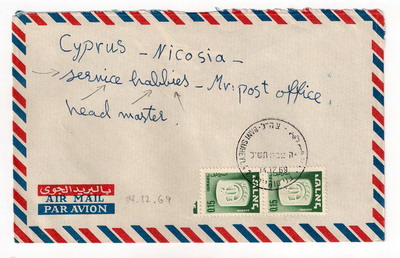 Cyprus - Nicosia -
service hobbies - Mr: post office
head master.
بالبريد الجوي
AIR MAIL
PAR AVION
14.12.69
0.15 ישראל
0.15 ישראל